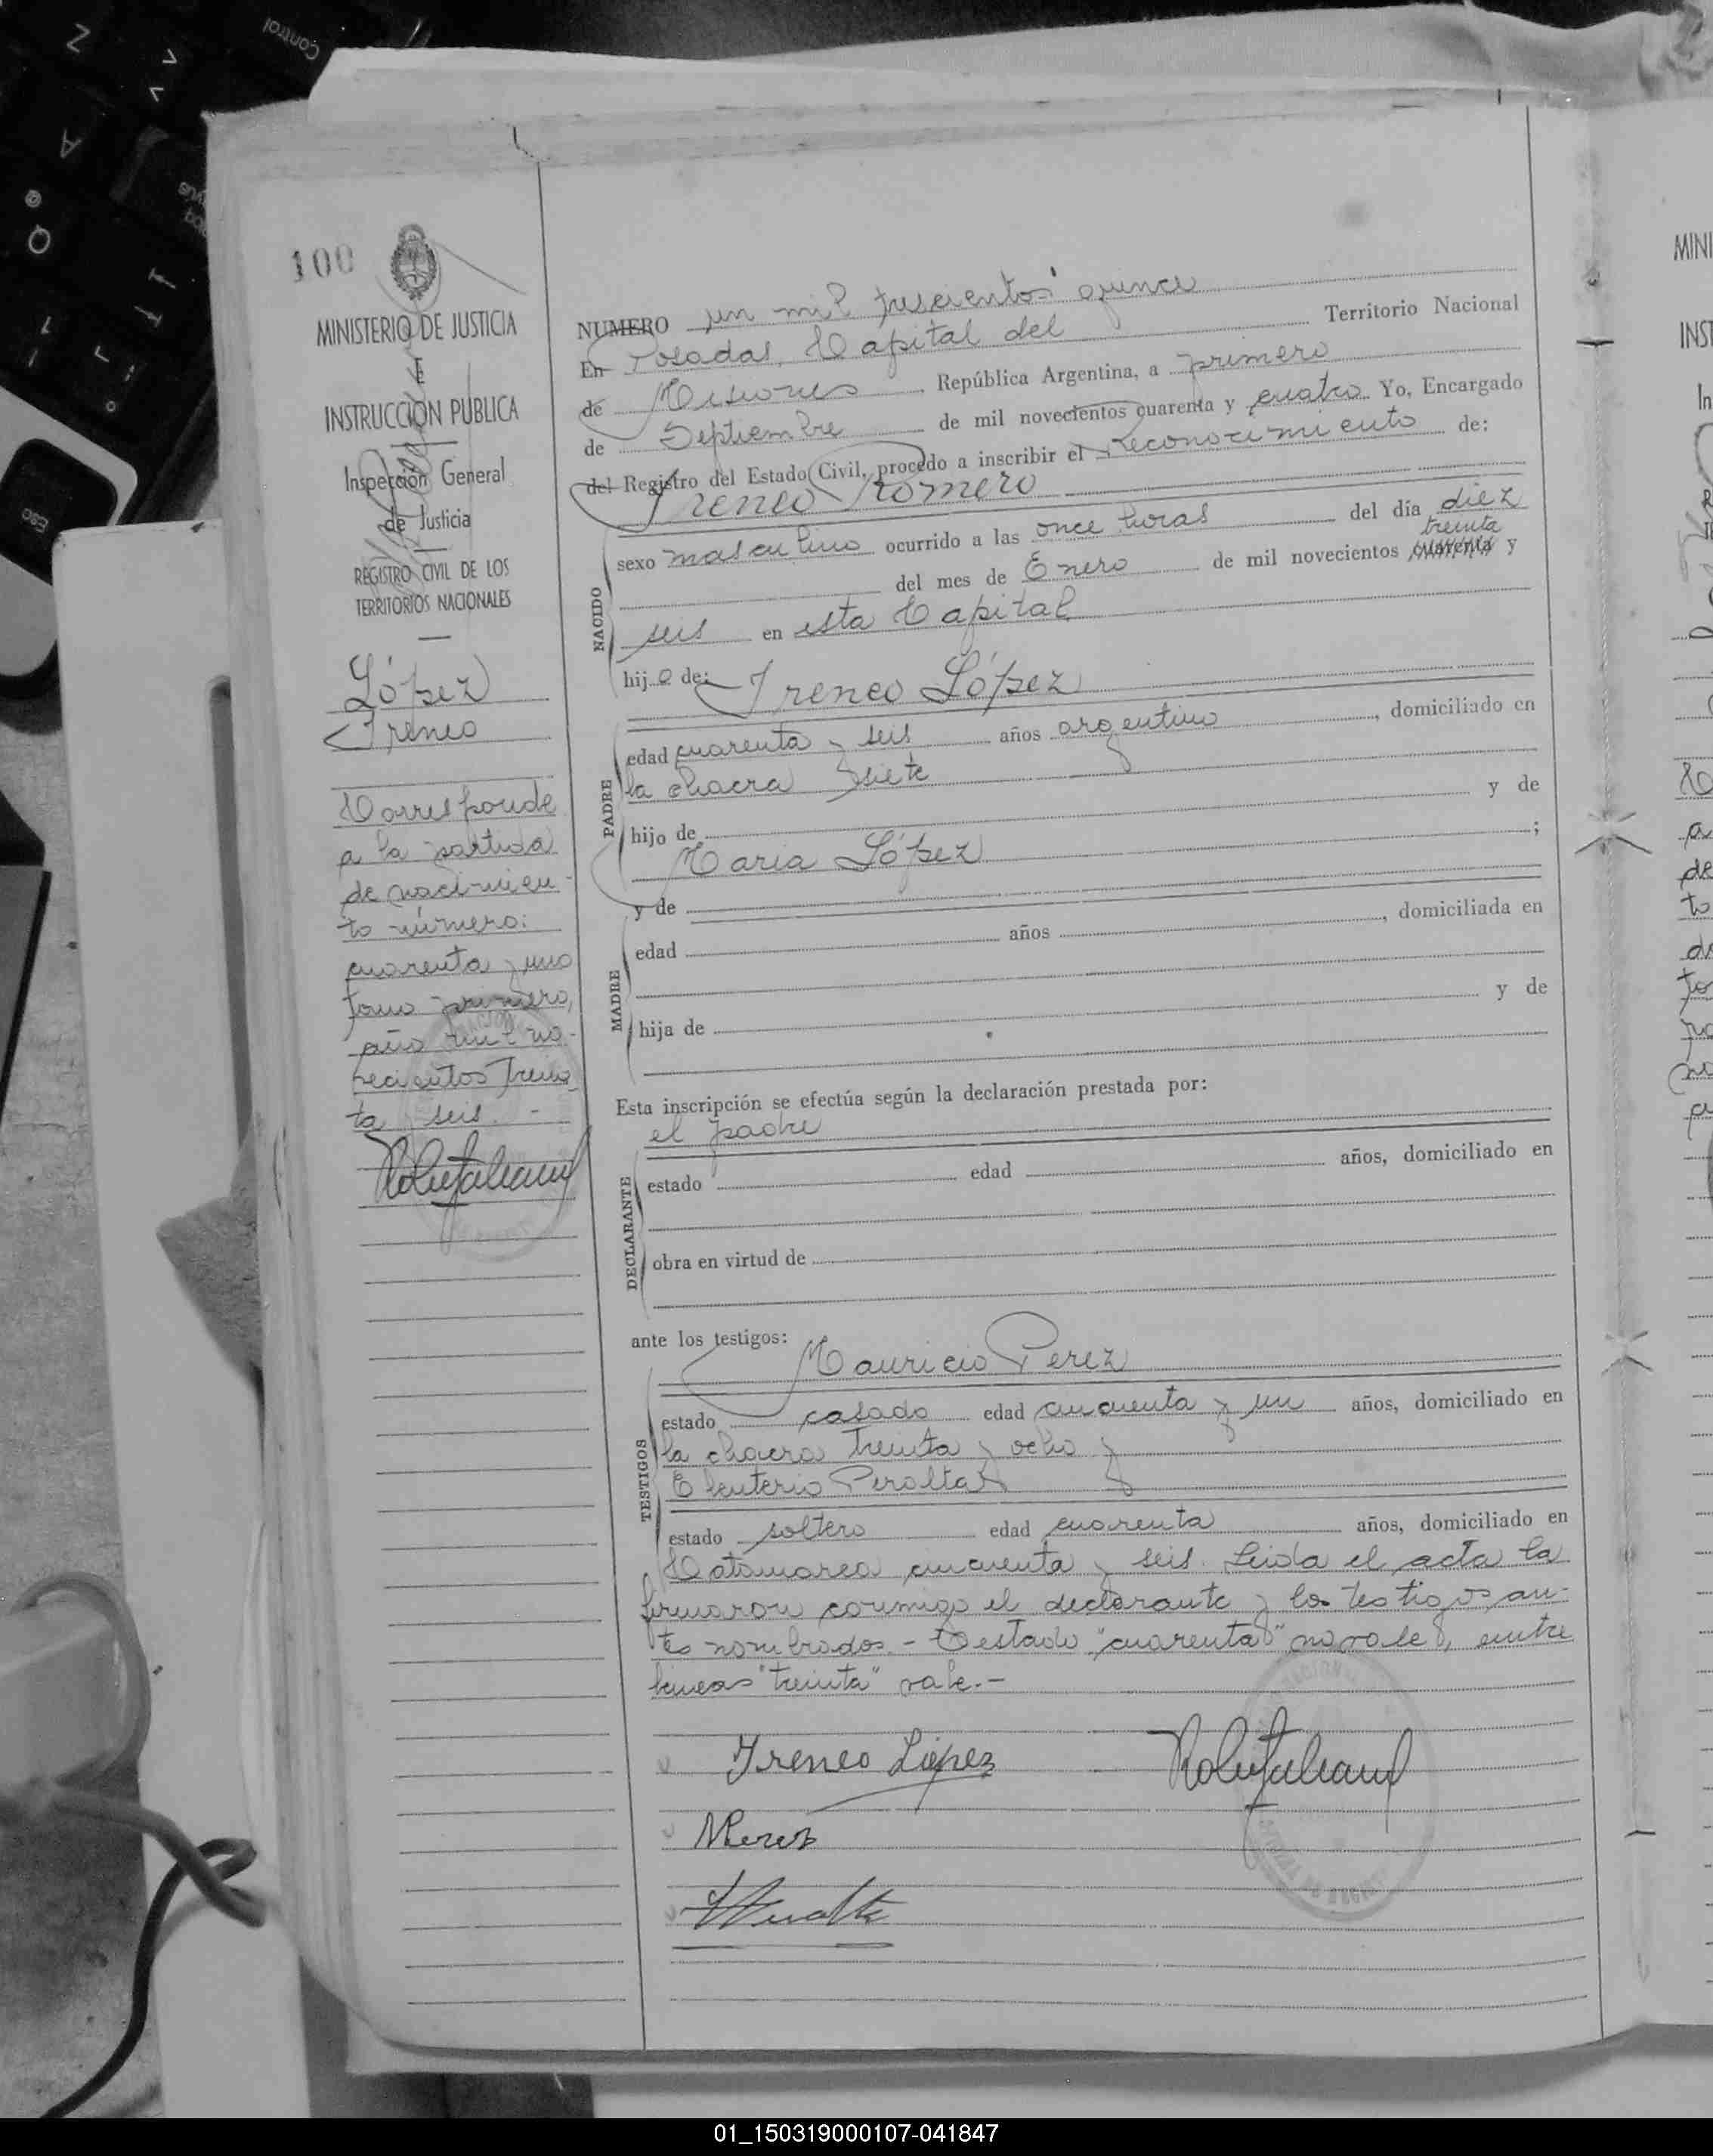 100
MINISTERIO DE JUSTICIA
E
INSTRUCCION PUBLICA
Inspección General
de Justicia
REGISTRO CIVIL DE LOS
TERRITORIOS NACIONALES
López
Ireneo
Corresponde
a la partida
de nacimien-
to número:
cuarenta y uno
tomo primero,
año mil no-
vecientos trein-
ta seis. -
NUMERO un mil trescientos quince
En Posadas, Capital del Territorio Nacional
de Misiones República Argentina, a primero
de Septiembre de mil novecientos cuarenta y cuatro Yo, Encargado
del Registro del Estado Civil, procedo a inscribir el reconocimiento de:
Ireneo Romero
NACIDO
sexo masculino ocurrido a las once horas del día diez
treinta
del mes de Enero de mil novecientos cuarenta y
seis en esta Capital
hijo de: Ireneo López
PADRE
edad cuarenta y seis años argentino, domiciliado en
la chacra siete
hijo de y de
María López ;
y de
MADRE
edad años , domiciliada en
hija de y de
Esta inscripción se efectúa según la declaración prestada por:
el padre
DECLARANTE
estado edad años, domiciliado en
obra en virtud de
ante los testigos:
Mauricio Perez
TESTIGOS
estado casado edad cincuenta y un años, domiciliado en
la chacra treinta y ocho y
Eleuterio Peralta
estado soltero edad cuarenta años, domiciliado en
Catamarca cincuenta y seis. Leida el acta la
firmaron conmigo el declarante y los testigos an-
tes nombrados. - Testado "cuarenta" no vale, entre
lineas "treinta" vale. -
Ireneo López
MPerez
Peralta
Control
Esc
MINI
INST
In
01_150319000107-041847